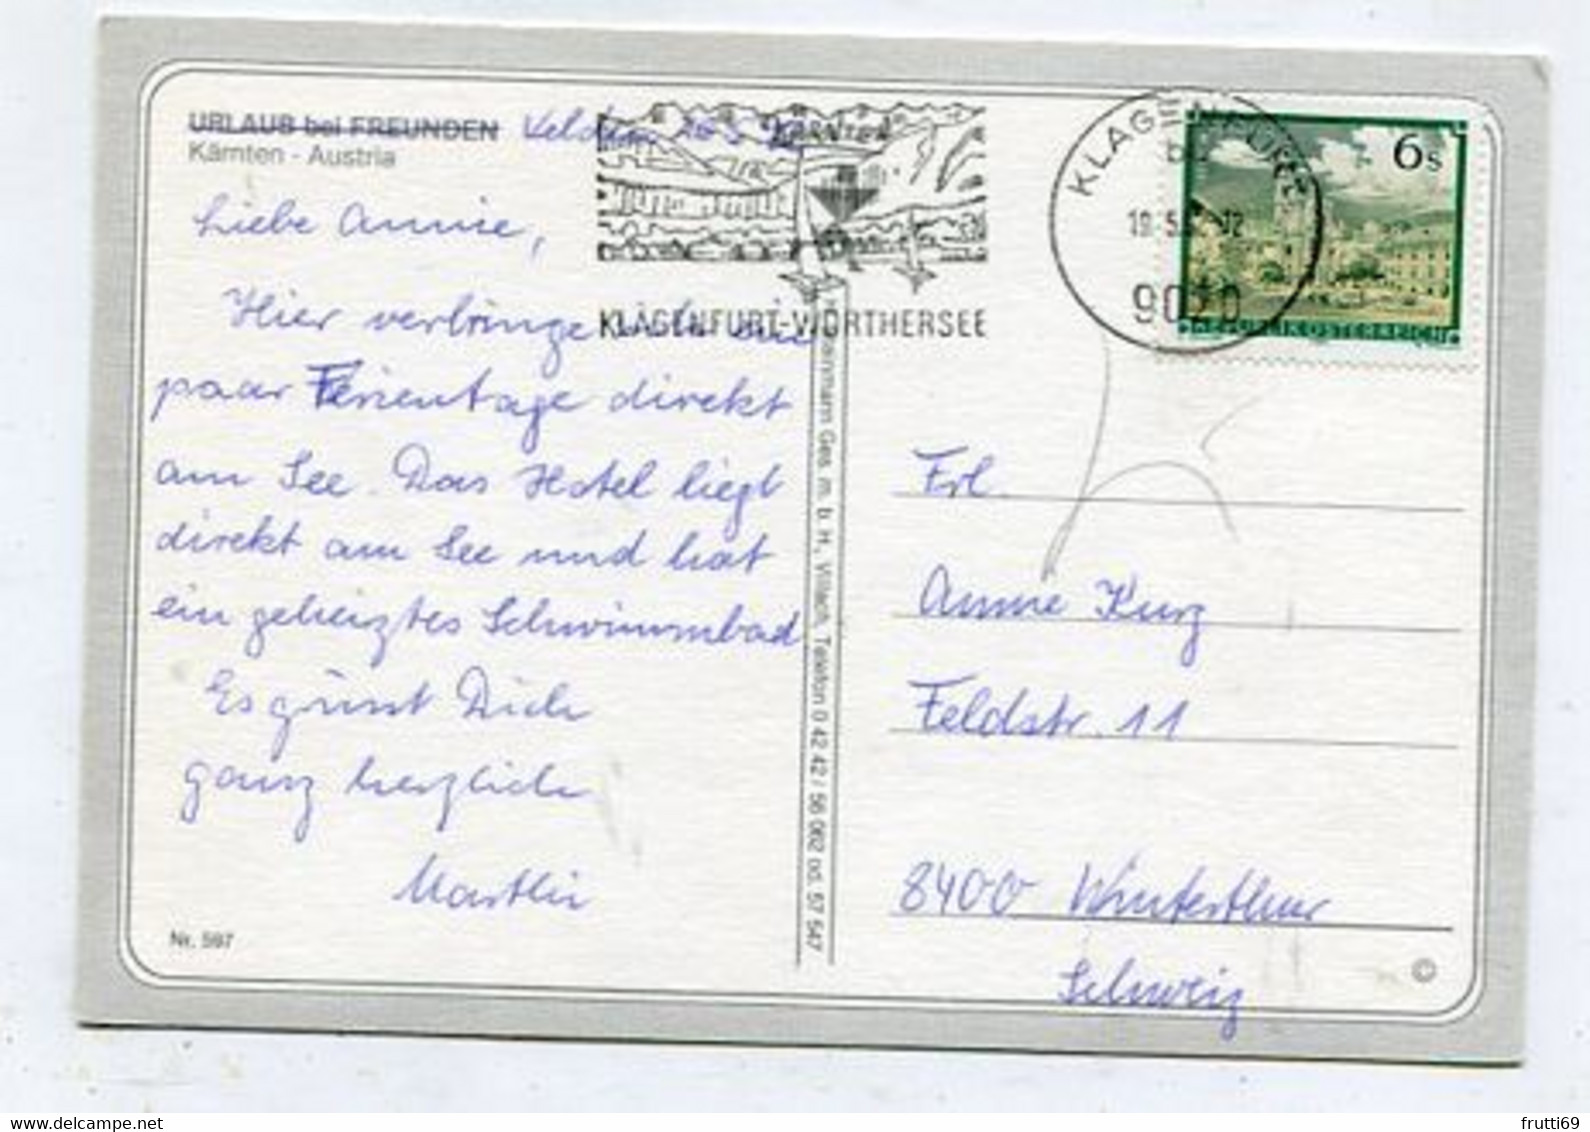 URLAUB bei FREUNDEN Velden
Kärnten - Austria
Liebe Annie,
Hier verbringe
paar Ferientage direkt
am See. Das Hotel liegt
direkt am See und hat
ein geheiztes Schwimmbad
Es grüsst Dich
ganz herzlich
Nr. 597
KÄRNTEN
KLAGENFURT-WÖRTHERSEE
KLAGENFURT
9020
6s
REPUBLIK ÖSTERREICH
Ges. m. b. H., Villach, Telefon 0 42 42 / 56 062 od. 57 547
Frl.
Annie Kurz
Feldstr. 11
8400 Winterthur
Schweiz
©
frutti69